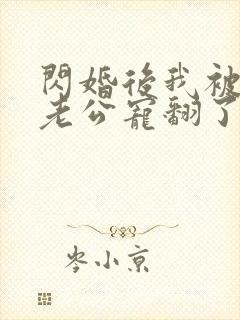 閃婚後我被
老公寵翻了
岑小京